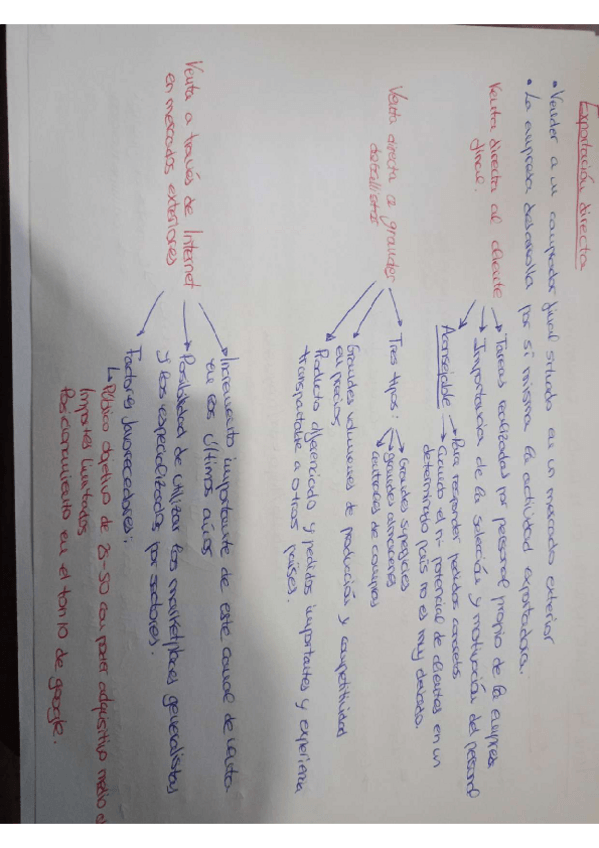 Exportación directa
• Vender a un comprador final situado en un mercado exterior
• La empresa desarrolla por si misma la actividad exportadora.
Venta directa al cliente
final.
Tareas realizadas por personal propio de la empresa
Importancia de la selección y motivación del personal
Aconsejable
Para responder pedidos concretos
Cuando el nº potencial de clientes en un
determinado país no es muy elevado.
Venta directa a grandes
detallistas
Tres tipos:
Grandes superficies
grandes almacenes
centrales de compras
Grandes volumenes de producción y competitividad
en precios
Producto diferenciado y pedidos importantes y experiencia
transportable a otros países.
Venta a través de Internet
en mercados exteriores
Incremento importante de este canal de venta
en los últimos años
Posibilidad de utilizar los marketplaces generalistas
y los especializados por sectores.
Factores favorecedores:
Público objetivo de 25-50 con poder adquisitivo medio
Importes limitados
Posicionamiento en el top 10 de google.